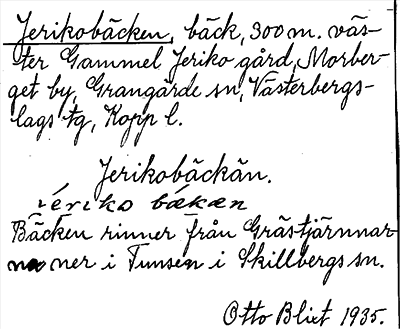 Jerikobäcken, bäck, 300 m. väs-
ter Gammel Jeriko gård, Morber-
get by, Grangärde sn, Västerbergs-
lags tg, Kopp l.
Jerikobäckän.
jériko bäkæn
Bäcken rinner från Grästjärnnar
na ner i Tunsen i Skillbergs sn.
Otto Blixt 1935.